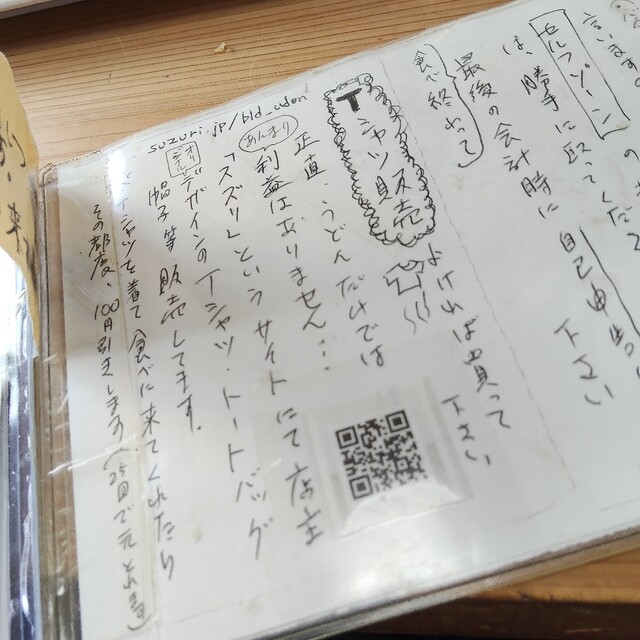 言います。
セルフゾーン
は、勝手に取って
最後の会計時に自己申告
下さい
食べ終わって
Tシャツ販売
よければ買って
下さい
正直、うどんだけでは
あんまり
利益はありません…
「スズリ」というサイトにて店主
デザインのTシャツ・トートバッグ
帽子等販売してます。
Tシャツを着て食べに来てくれたら
その都度、100円引きします(25回で元とれます)
suzuri.jp/bld_udon